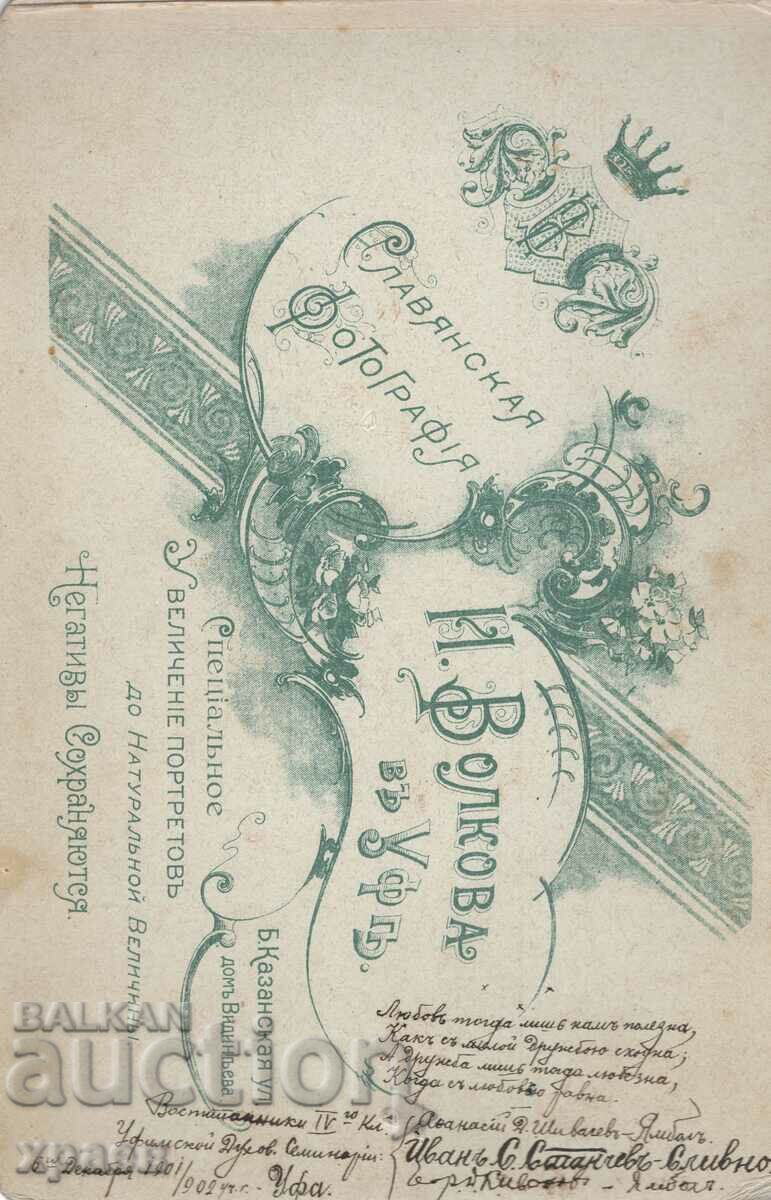 СЛАВЯНСКАЯ
ФОТОГРАФІЯ
И. ВОЛКОВА
ВЪ УФѢ.
Спеціальное
УВЕЛИЧЕНІЕ ПОРТРЕТОВЪ
ДО НАТУРАЛЬНОЙ ВЕЛИЧИНЫ
Негативы Сохраняются.
Б. Казанская ул.
домъ Видинѣева
Любовь тогда лишь намъ полезна,
Какъ съ милой дружбою сходна;
А дружба лишь тогда любезна,
Когда съ любовью равна.
Воспитанники IV го Кл.
Уфимской Духов. Семинаріи:
6 Декабря 1901/902 уч. г. Уфа.
Аѳанасій Д. Шивачев-Ямбол.
Иванъ С. Станчевъ-Сливно
- Ямбол.
BALKAN
auction
храни